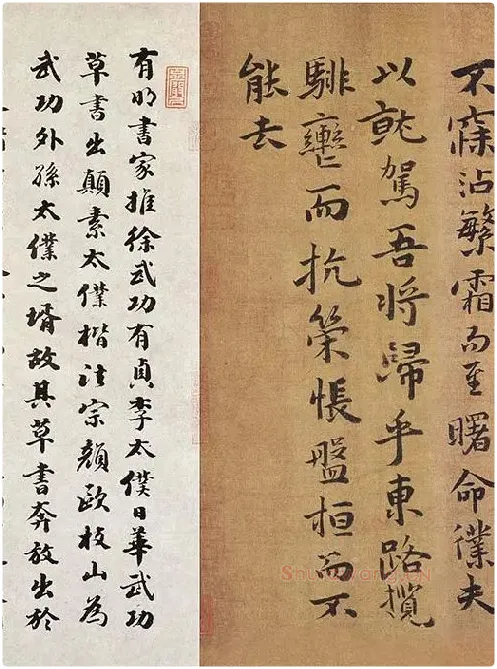 不寐沾繁霜而至曙命僕夫
以就駕吾將歸乎東路攬
騑轡而抗策悵盤桓而不
能去
有明書家推徐武功有貞李太僕日華武功
草書出顛素太僕楷法宗顏歐枝山為
武功外孫太僕之壻故其草書奔放出於